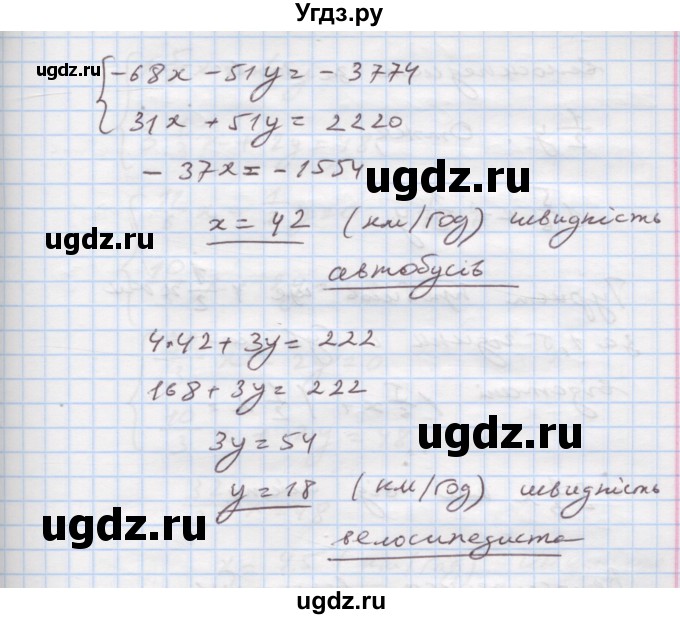 Угдз.ру
ugdz.ru
-68x - 51y = -3774
31x + 51y = 2220
- 37x = -1554
ugdz.ru
x = 42 (км/год) швидкість
ugdz.ru
автобусів
4·42 + 3y = 222
168 + 3y = 222
ugdz.ru
3y = 54
y = 18 (км/год) швидкість
ugdz.ru
велосипедиста
ugdz.ru